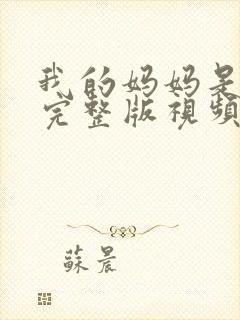 我的妈妈是
完整版視頻
蘇晨